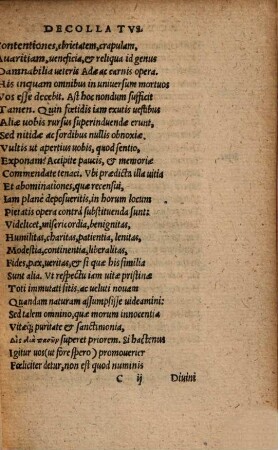 DECOLLATVS.
Contentiones, ebrietatem, crapulam,
Auaritiam, ueneficia, & reliqua id genus
Damnabilia ueteris Adæ ac carnis opera.
His inquam omnibus in uniuersum mortuos
Vos esse decebit. Ast hoc nondum sufficit
Tamen. Quin fœtidis iam exutis uestibus
Aliæ uobis rursus superinduendæ erunt,
Sed nitidæ ac sordibus nullis obnoxiæ,
Vultis ut apertius uobis, quod sentio,
Exponam? Accipite paucis, & memoriæ
Commendate tenaci. Vbi prædicta illa uitia
Et abominationes, quæ recensui,
Iam planè deposueritis, in horum locum
Pietatis opera contrà substituenda sunt:
Videlicet, misericordia, benignitas,
Humilitas, charitas, patientia, lenitas,
Modestia, continentia, liberalitas,
Fides, pax, ueritas, & si quæ his similia
Sunt alia. Vt respectu iam uitæ pristinæ
Toti immutati sitis, ac ueluti nouam
Quandam naturam assumpsisse uideamini:
Sed talem omnino, quæ morum innocentia
Vitæq; puritate & sanctimonia,
superet priorem. Si hactenus
Igitur uos (ut fore spero) promouerier
Fœliciter detur, non est quod numinis
C ij Diuini